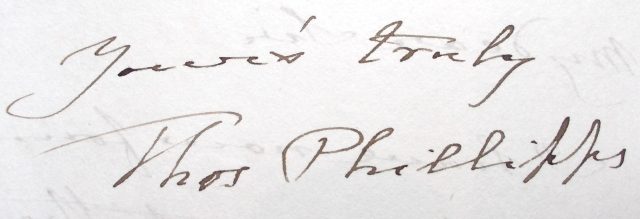 Your's truly
Thos Phillipps